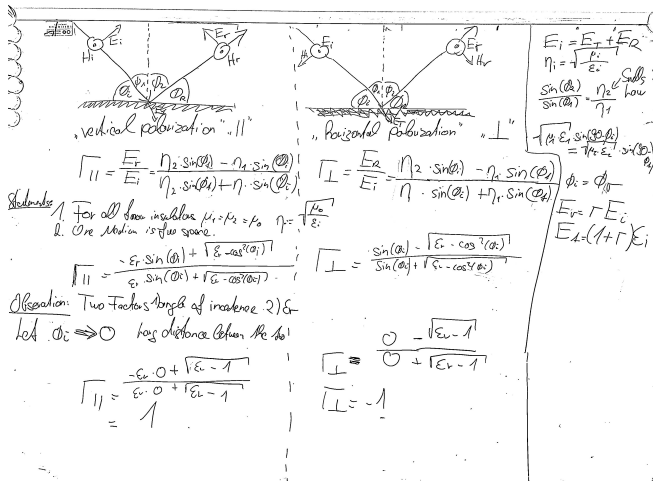 Ei Er
Hi Hr
Φi Φ1 Φ2 Φr
"vertical polarization" "||"
Γ|| = Er/Ei = (η2·sin(Φt) - η1·sin(Φi)) / (η2·sin(Φt) + η1·sin(Φi))
Statements:
1. For all loss insulators μ1=μ2=μ0 η=√(μ0/εi)
2. One Medium is free space.
Γ|| = (-εr·sin(Φi) + √(εr-cos²(Φi))) / (εr·sin(Φi) + √(εr-cos²(Φi)))
Observation: Two Factors 1) angle of incedence 2) εr
Let Φi ⇒ 0 long distance between the
Γ|| = (-εr·0 + √(εr-1)) / (εr·0 + √(εr-1))
= 1
Ei Er
Hr
Φi
"horizontal polarization" "⊥"
Γ⊥ = ER/Ei = (η2·sin(Φi) - η1·sin(Φt)) / (η·sin(Φi) + η1·sin(Φt))
Γ⊥ = (sin(Φi) - √(εr-cos²(Φi))) / (sin(Φi) + √(εr-cos²(Φi)))
Γ⊥ = (0 - √(εr-1)) / (0 + √(εr-1))
Γ⊥ = -1
Ei = ET + ER
ηi = √(μi/εi)
sin(Φ2)/sin(Φ1) = η2/η1 Snells Law
√(μ1·ε1) sin(90-Φi)
= √(μr·εi)·sin(90-
Φi = Φr
Er = r Ei
Et=(1+r)Ei